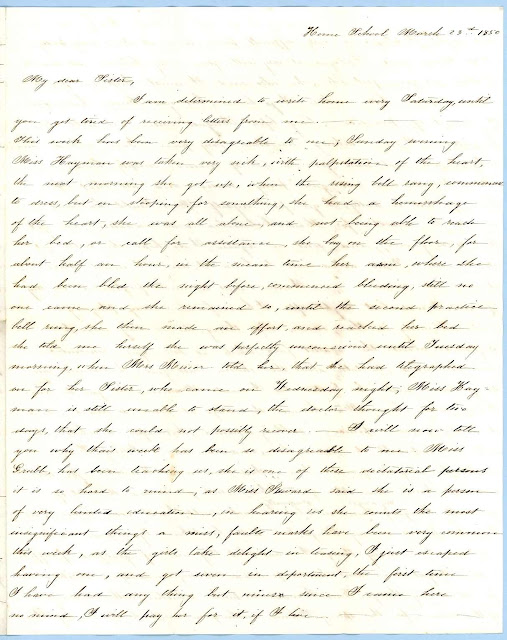 Home School March 23th 1850
My dear Sister,
I am determined to write home every Saturday, until
you get tired of receiving letters from me. —
This week has been very disagreable to me; Sunday evening
Miss Hayman was taken very sick, with palpitation of the heart,
the next morning she got up, when the rising bell rang, commenced
to dress, but on stooping for something, she had a hemorrhage
of the heart, she was all alone, and not being able to reach
her bed, or call for assistance, she lay on the floor, for
about half an hour, in the mean time her arm, where she
had been bled the night before, commenced bleeding, still no
one came, and she remained so, until the second practice
bell rung, she then made an effort, and reached her bed
she told me herself she was perfectly unconscious until Tuesday
morning, when Mrs Minor told her, that she had telegraphed
on for her Sister, who came on Wednesday night; Miss Hay-
man is still unable to stand, the doctor thought for two
days, that she could not possibly recover. — I will now tell
you why this week has been so disagreable to me. Miss
has been teaching us, she is one of those dictatorial persons
it is so hard to mind, as Miss said she is a person
of very limited education, in hearing us she counts the most
insignificant things a miss, faults marks have been very common
this week, as the girls take delight in teasing, I just escaped
having one, and got seven in deportment, the first time
I have had any thing but nines since I came here
no mind, I will pay her for it, if I live. —